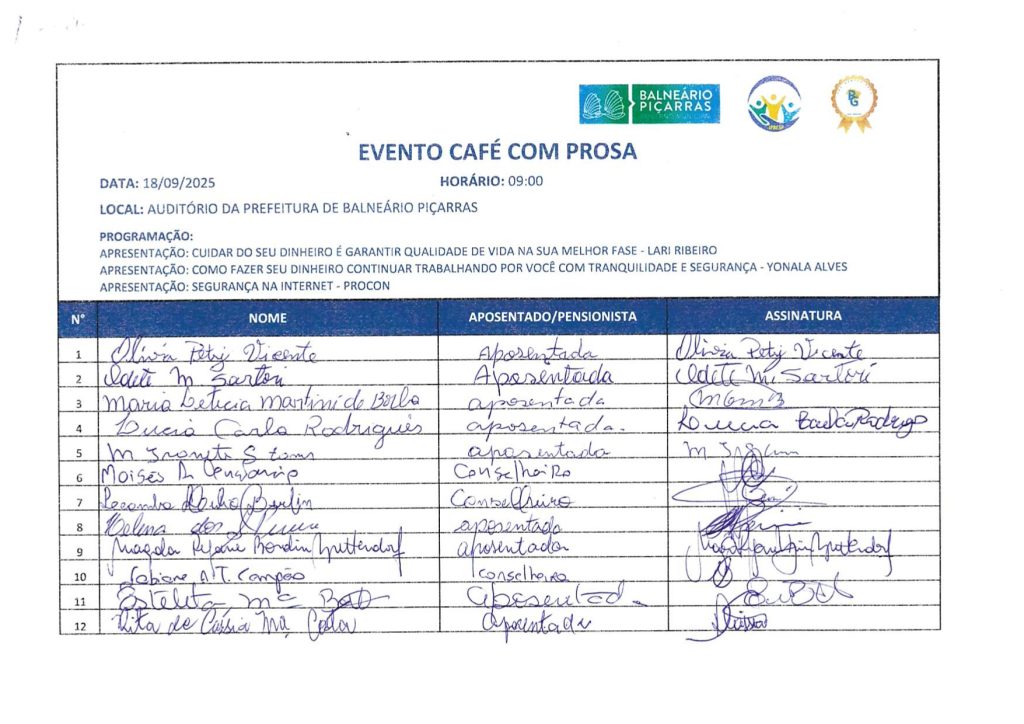 BALNEÁRIO
PIÇARRAS
EVENTO CAFÉ COM PROSA
DATA: 18/09/2025 HORÁRIO: 09:00
LOCAL: AUDITÓRIO DA PREFEITURA DE BALNEÁRIO PIÇARRAS
PROGRAMAÇÃO:
APRESENTAÇÃO: CUIDAR DO SEU DINHEIRO É GARANTIR QUALIDADE DE VIDA NA SUA MELHOR FASE - LARI RIBEIRO
APRESENTAÇÃO: COMO FAZER SEU DINHEIRO CONTINUAR TRABALHANDO POR VOCÊ COM TRANQUILIDADE E SEGURANÇA - YONALA ALVES
APRESENTAÇÃO: SEGURANÇA NA INTERNET - PROCON
N° NOME APOSENTADO/PENSIONISTA ASSINATURA
1 Olivia Petry Vicente Aposentada Olivia Petry Vicente
2 Odete M. Sartori Aposentada Odete M. Sartori
3 Maria Leticia Martini de Borba aposentada
4 Lucia Carla Rodrigues aposentada. Lucia Carla Rodrigo
5 M Ivonete S aposentada M
6 Moisés Conselheiro
7 Conselheiro
8 dos aposentada
9 Magda Rejane Bondin aposentada
10 Fabiane A.T. Campão conselheira
11 Estelita Mª Aposentada
12 Rita de Cássia Ma. Costa Aposentada